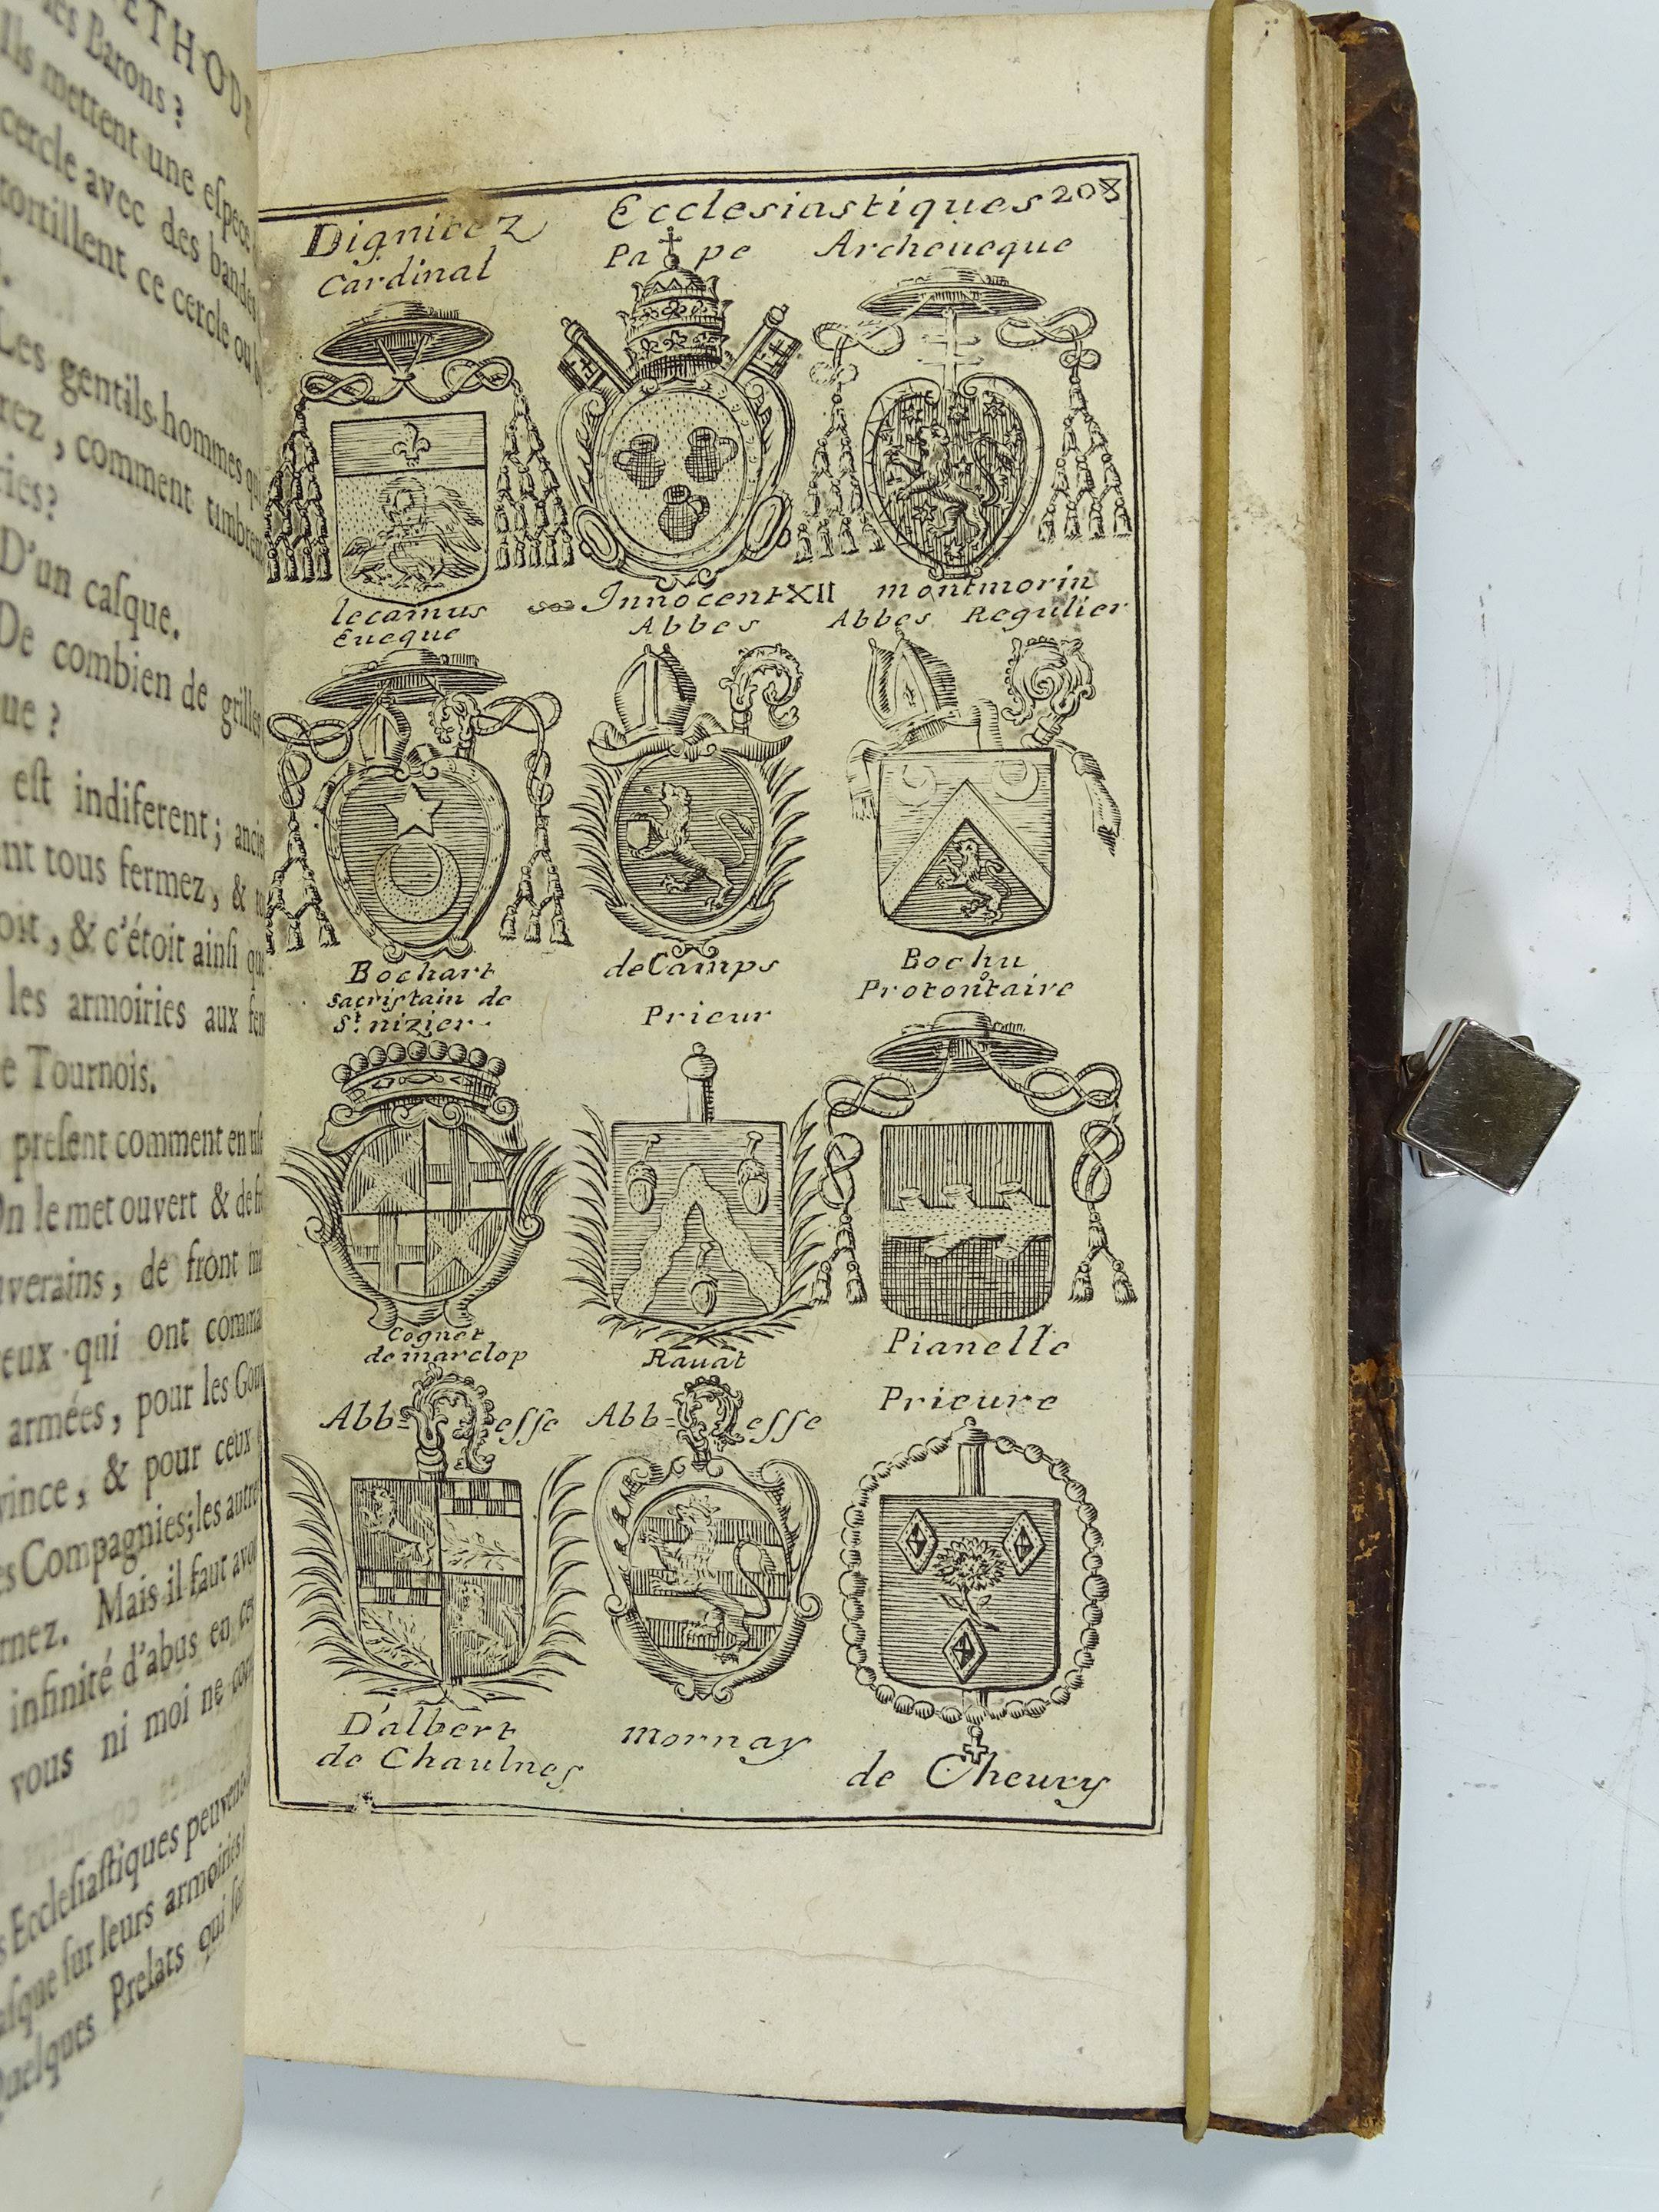 ETHODE
les Barons ?
Ils mettent une espece
cercle avec des bandes
tortillent ce cercle ou
Les gentils-hommes
rez, comment timbrent
ries ?
D'un casque.
De combien de grilles
ue ?
est indiferent ; ancie
nt tous fermez, &
oit, & c'étoit ainsi que
les armoiries aux
e Tournois.
present comment en
On le met ouvert & de
uverains, de front
eux qui ont comma
armées, pour les Gou
vince, & pour ceux
es Compagnies ; les autres
rnez. Mais il faut avo
infinité d'abus en ce
vous ni moi ne
Ecclesiastiques peuvent
asque sur leurs armoiries
Quelques Prelats qui
Dignitez Ecclesiastiques 208
Cardinal Pape Archeueque
lecamus Innocent XII montmorin
Eueque Abbes Abbes Regulier
Bochart de Camps Bochu
sacristain de St. nizier. Prieur Protontaire
Cognet de marclop Rauat Pianelle
Abb=esse Abb=esse Prieure
D'albert de Chaulnes mornay de Cheury